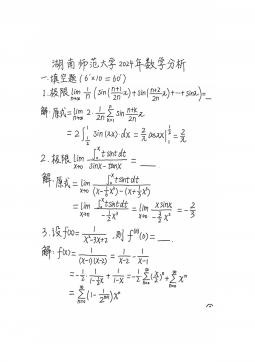 湖南师范大学2024年数学分析
一.填空题(6'×10=60')
1.极限 lim_{n→∞} 1/n (sin(n+1)/2n π + sin(n+2)/2n π + ⋯ + sinπ) = __
解:原式 = lim_{n→∞} 2·1/2n ∑_{k=1}^{n} sin (n+k)/2n π
= 2∫_{1/2}^{1} sin(πx)·dx = 2/π cosπx |_{1}^{1/2} = 2/π
2.极限 lim_{x→0} ∫_0^x t sint dt / (sinx-tanx) = ___
解:原式 = lim_{x→0} ∫_0^x t sint dt / ((x-1/6 x³)-(x+1/3 x³))
= lim_{x→0} ∫_0^x t sint dt / (-1/2 x³) = lim_{x→0} x sinx / (-3/2 x²) = -2/3
3.设 f(x) = 1/(x²-3x+2) ,则 f⁽ⁿ⁾(0) = ___.
解: f(x) = 1/((x-1)(x-2)) = 1/(x-2) - 1/(x-1)
= -1/2·1/(1-1/2 x) + 1/(1-x) = -1/2 ∑_{n=0}^{∞} (x/2)ⁿ + ∑_{n=0}^{∞} xⁿ
= ∑_{n=0}^{∞} (1-1/2ⁿ⁺¹) xⁿ